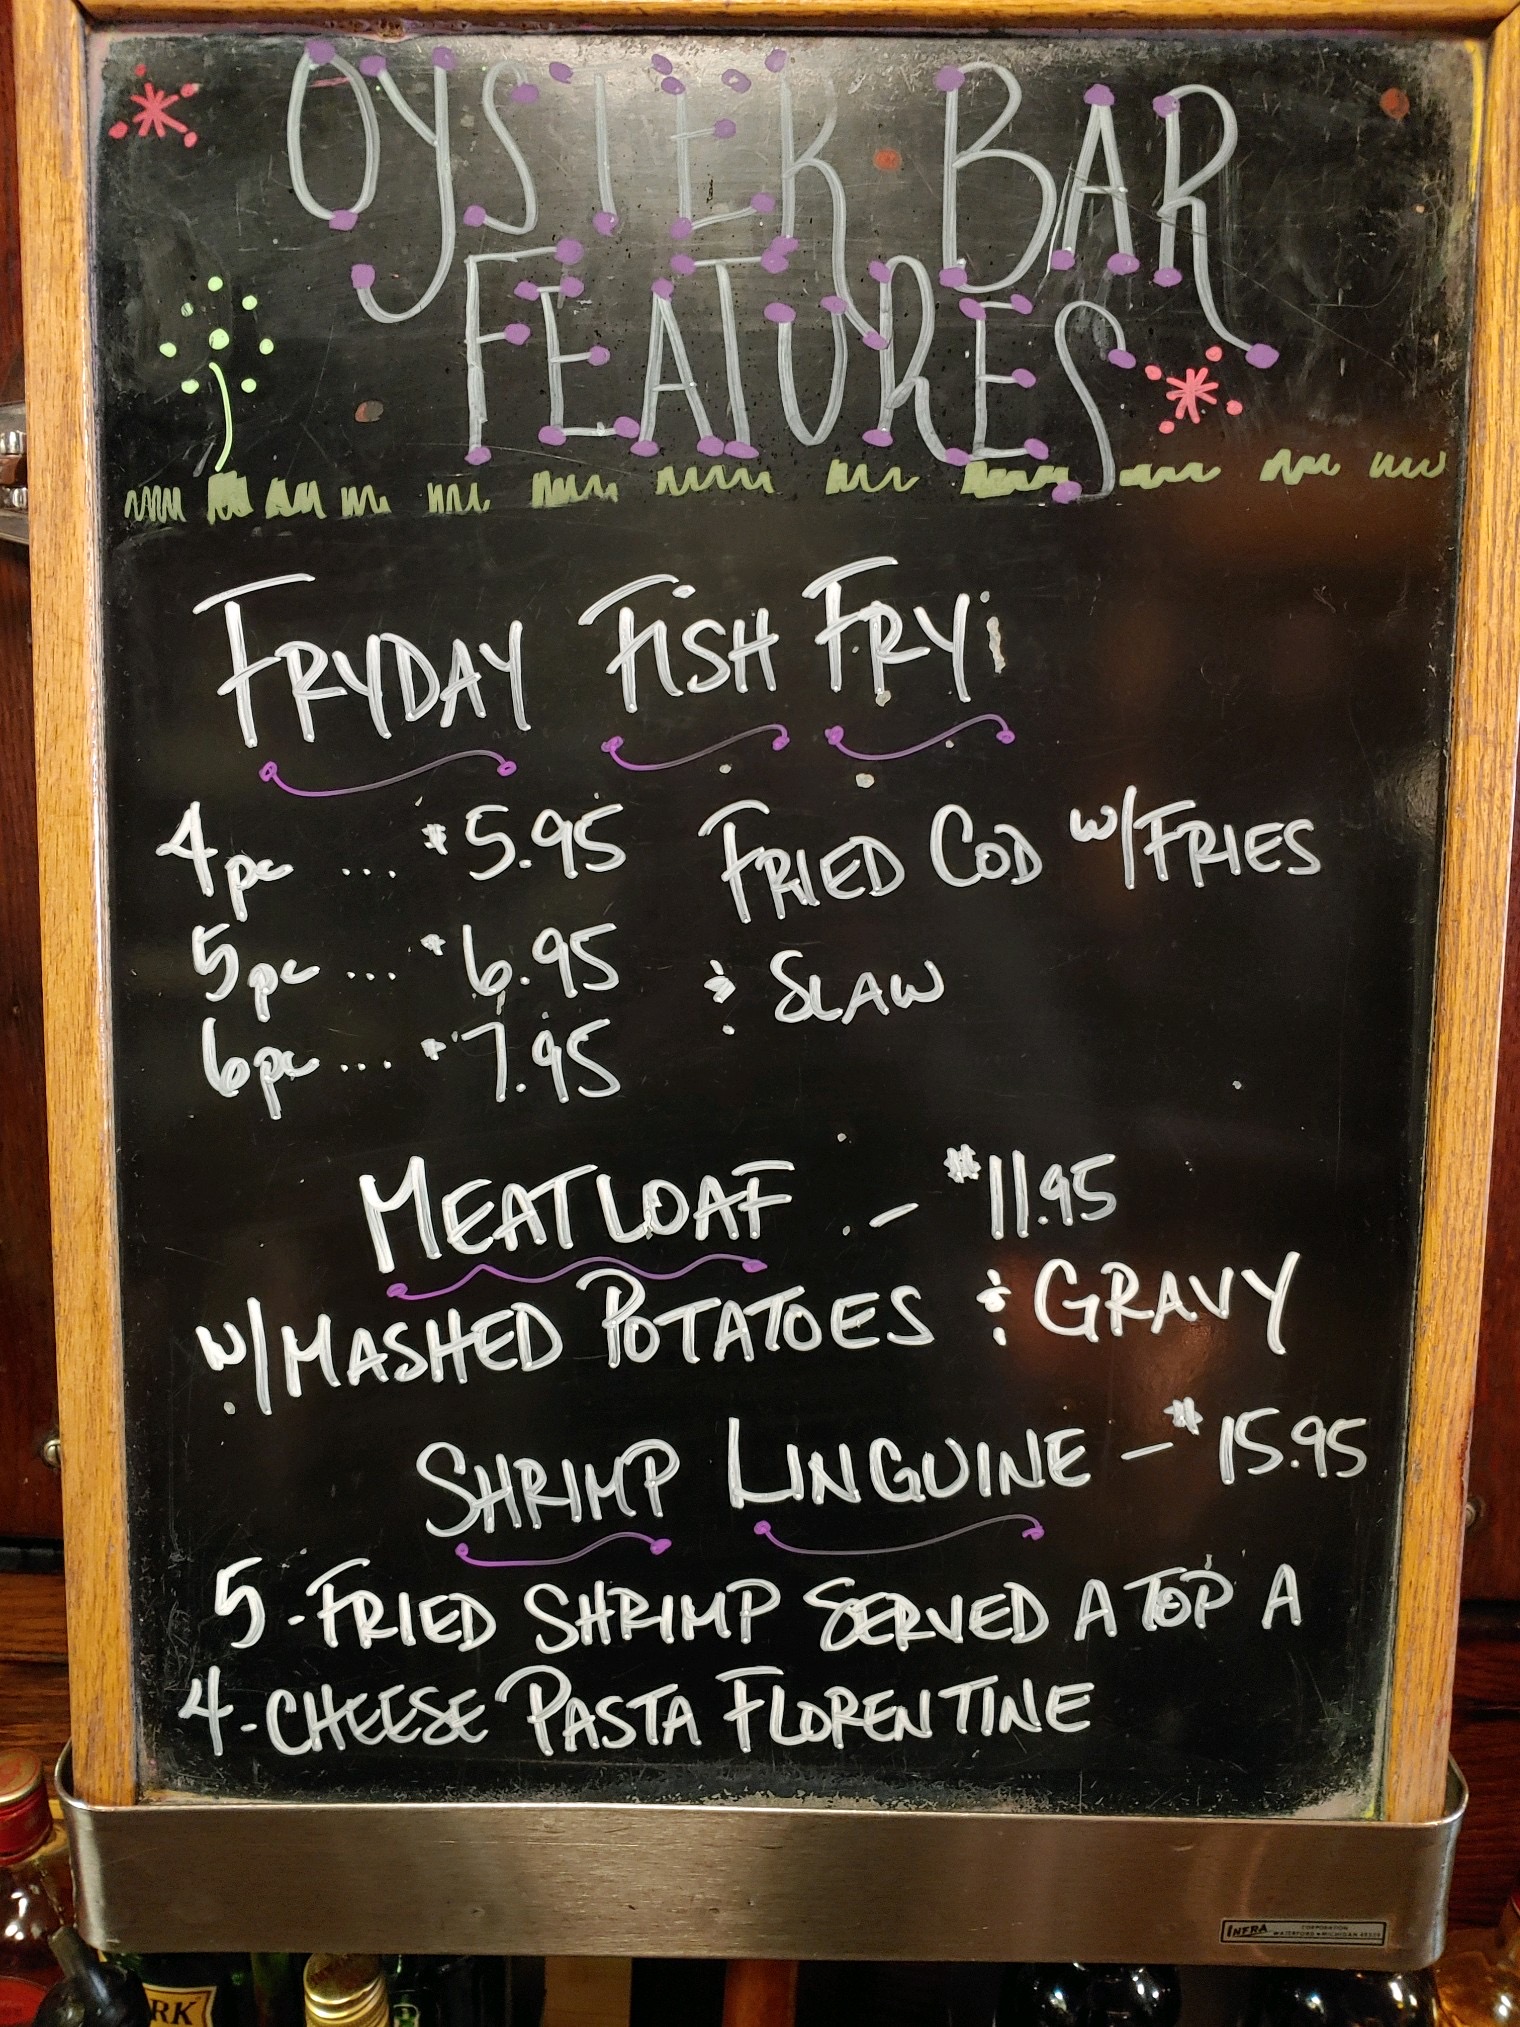 OYSTER BAR
FEATURES
FRYDAY FISH FRY!
4pc ... $5.95 FRIED COD w/FRIES
5pc ... $6.95 & SLAW
6pc ... $7.95
MEATLOAF - $11.95
w/MASHED POTATOES & GRAVY
SHRIMP LINGUINE - $15.95
5-FRIED SHRIMP SERVED A TOP A
4-CHEESE PASTA FLORENTINE
INFRA CORPORATION
WATERFORD MICHIGAN
RK